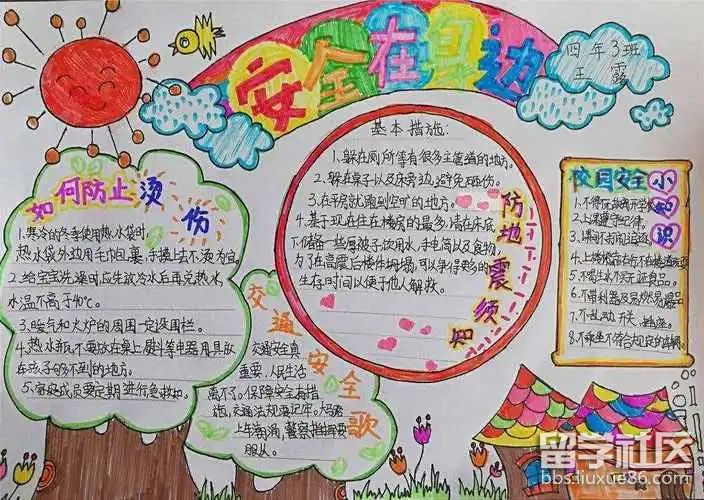 安全在身边
四年3班
王露
如何防止烫伤
1.寒冷的冬季使用热水袋时,
热水袋外边用毛巾裹,手摸上去不烫为宜
2.给宝宝洗澡时,应先放冷水后再兑热水,
水温不高于40℃。
3.暖气和火炉的周围一定设围栏。
4.热水瓶不要放在桌上,熨斗等电器用具放
在孩子够不到的地方。
5.家庭成员要定期进行急救知
交通安全歌
交通安全真
重要,人民生活
离不了。保障安全有措
施,交通法规要记牢。大马路
上车辆涌,警察指挥要
服从。
基本措施:
1.躲在厕所等有很多主管道的地方。
2.躲在桌子以及床旁边,避免砸伤。
3.在平房就跑到空旷的地方。
4.基于现在住在楼房的最多,请在床底
下储备一些厚被子,饮用水,手电筒以及食物,
为了在高震后楼体坍塌,可以争得更多的
生存时间以便于他人解救。
防地震须知
校园安全小知识
2.上课遵守纪律。
3.课间不打闹追逐
5.不喝生水不买三无食品。
6.不带利器及易燃易爆品
7.不乱动开关、
8.不乘坐不符合规定的车辆
留学社区
bbs.liuxue86.com